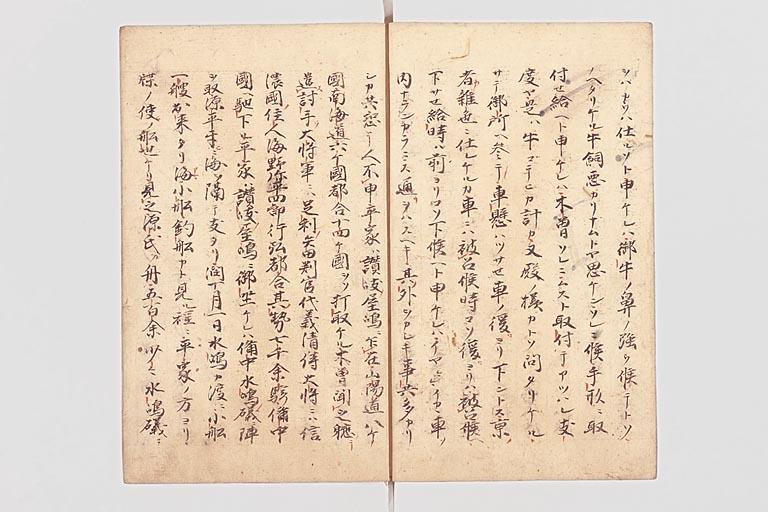 ツハカツハ仕ルソト申ケレハ御牛ノ鼻ノ強ク候テトソ
ノヘタリケル牛飼悪カリナムトヤ思ケンソレニ候手形ニ取
付セ給ヘト申ケレハ木曽ソレニムスト取付テアツハレ支
度ヤ是ハ牛コテイカ計カ又殿ノ様カトソ問タリケル
サテ御所ヘ参テ車懸ハツサセ車ノ後ヨリ下ントス京
者雑色ニ仕レケルカ車ニハ被召候時コソ後ヨリハ被召候ヘ
下サセ給時ハ前ヨリコソ下候ヘト申ケレハイカテカ車ノ
内ナランカラニス通ヲハスヘキ其外ヲカシキ事共多カリ
シカ共恐テ人不申平家ハ讃岐屋嶋ニ乍在山陽道八ケ
國南海道六ケ國都合十四ケ國ヲソ打取ケル木曽聞之
遣討手大将軍ニハ足利矢田判官代義清侍大将ニハ信
濃國住人海野弥平四郎行弘都合其勢七千余騎備中
國ヘ馳下ル平家讃岐屋嶋ニ御坐ケレハ備中水嶋礒ニ陣
ヲ取源平手ニ海ヲ隔テ支タリ閏十月一日水嶋カ渡ニ小船
一艘出来タリ海小船釣船カト見程ニ平家ノ方ヨリ
牒ノ使ノ船也ケリ見之源氏ノ舟五百余水嶋礒ニ